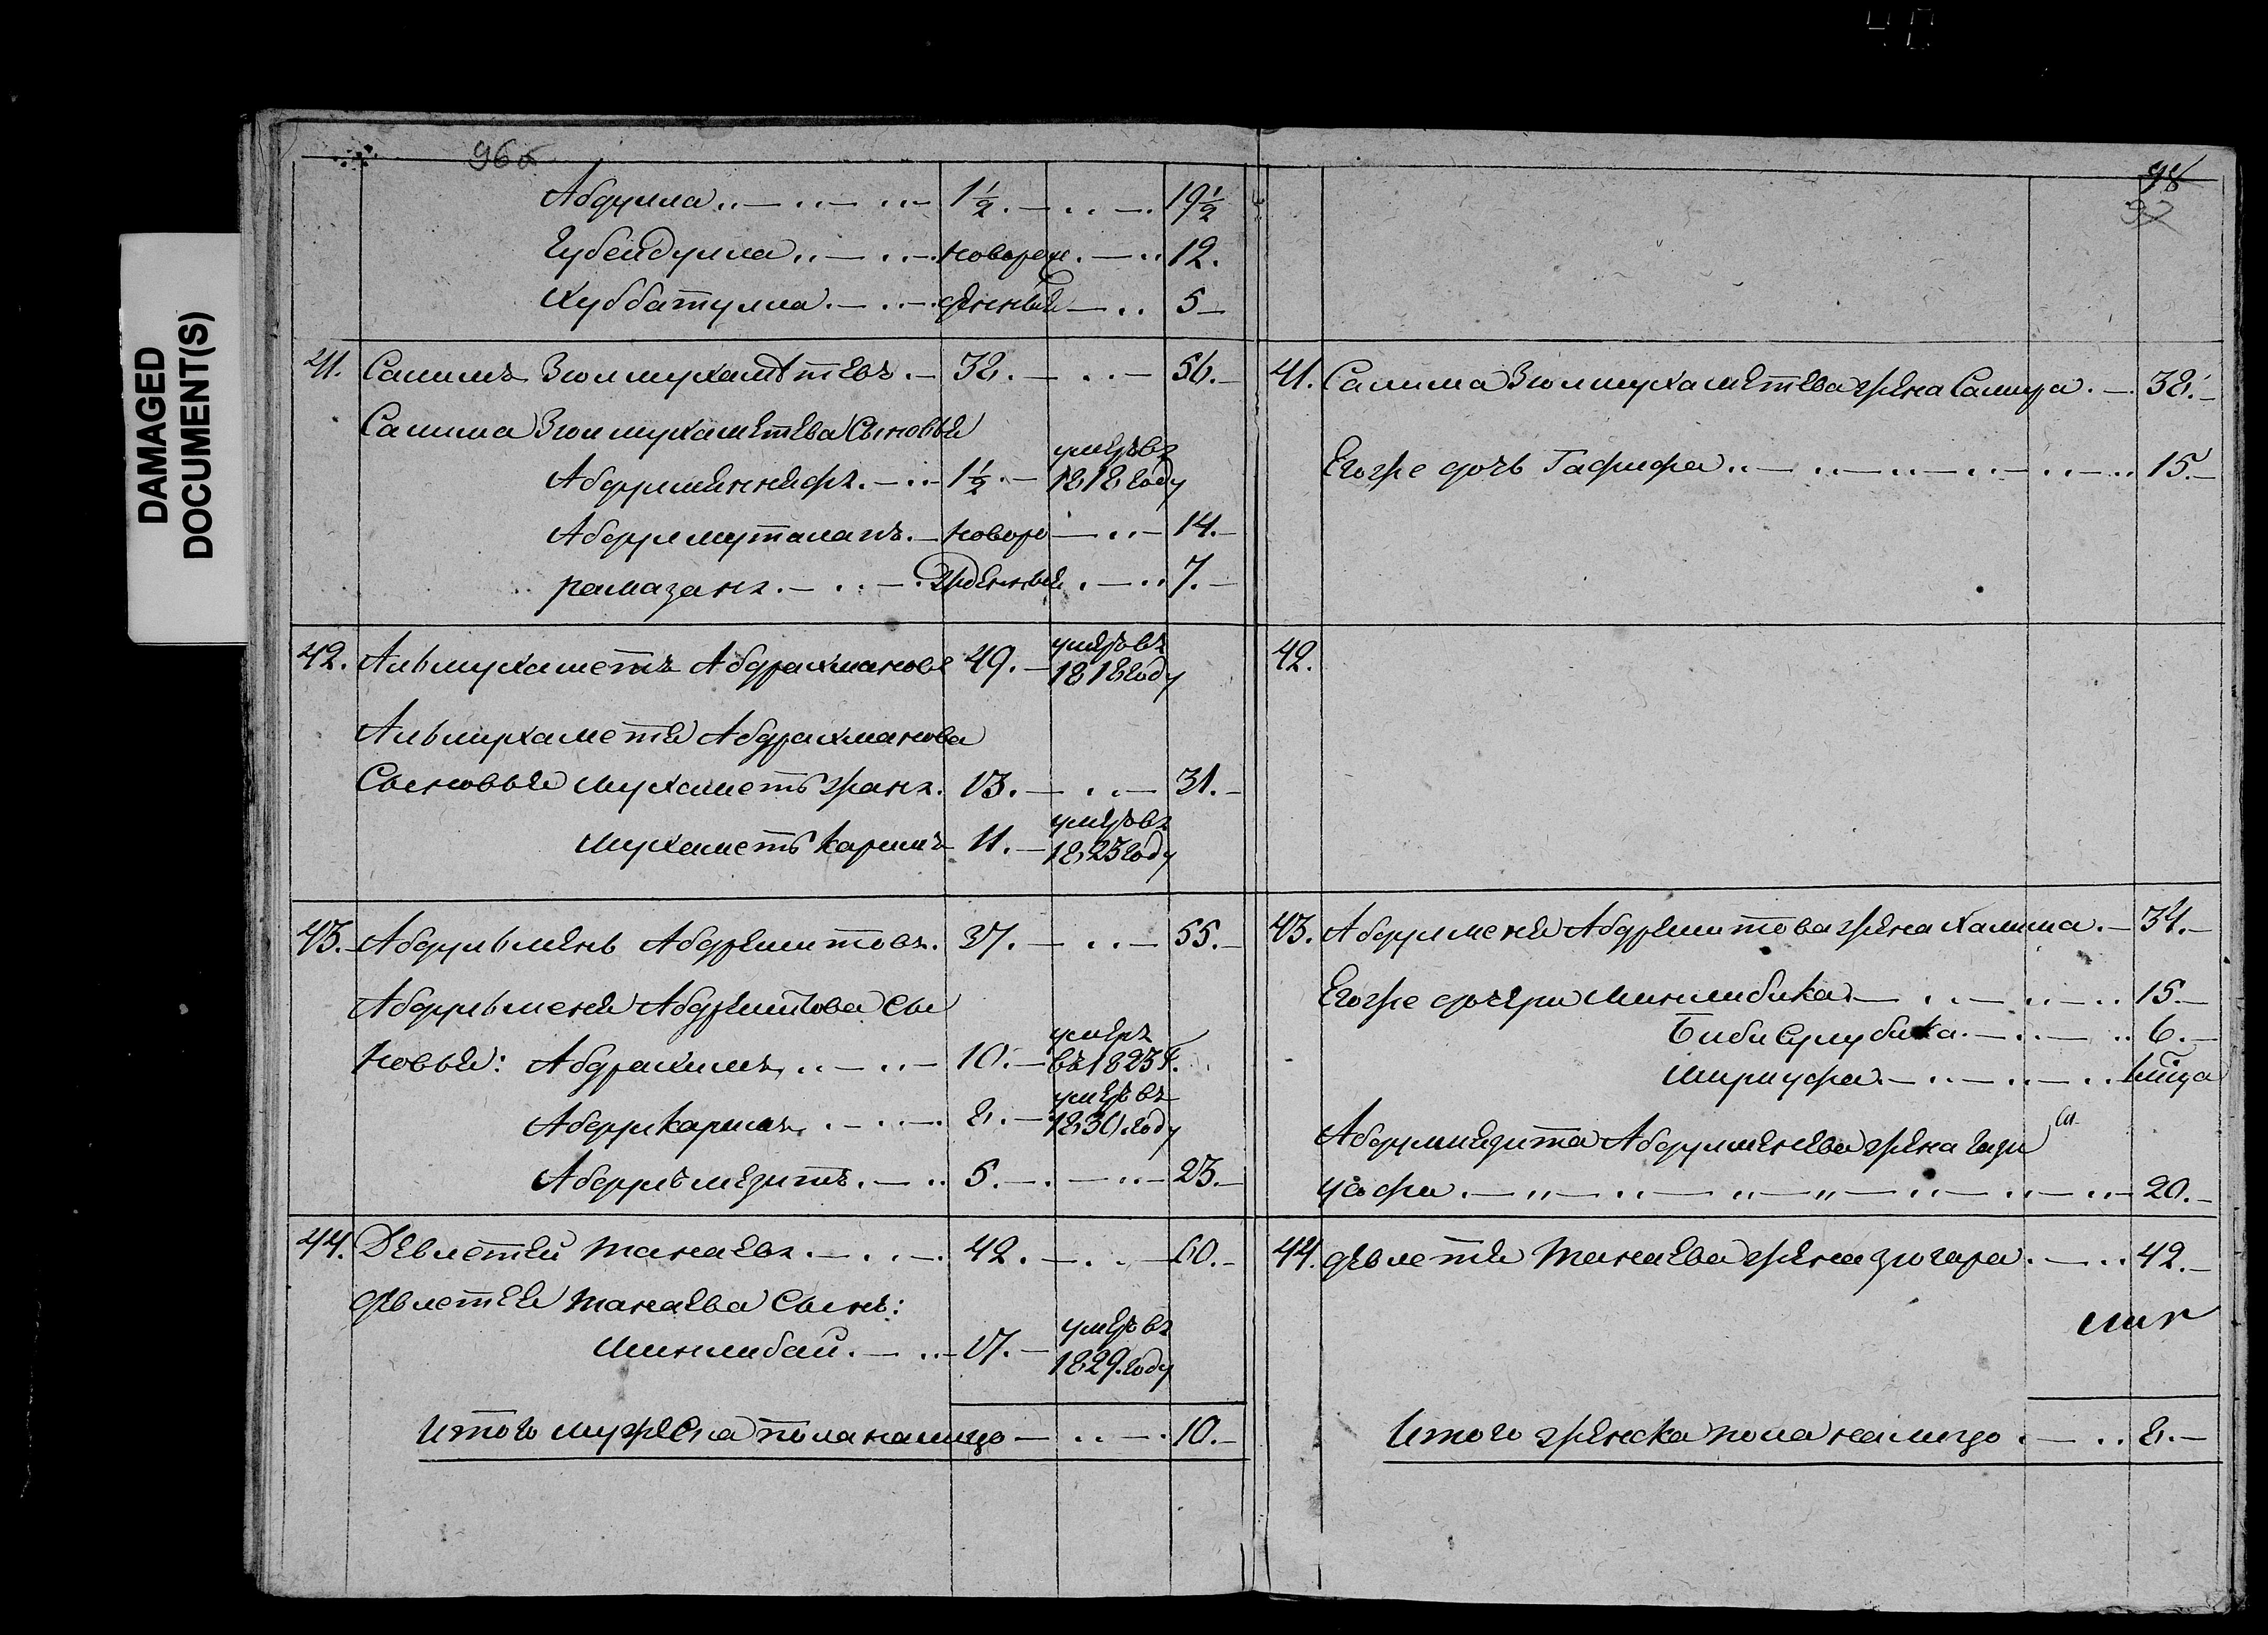 DAMAGED
DOCUMENT(S)
96об
Абдулла 1½. 19½
Губейдулла новорож 12.
Хуббатулла денные 5
41. Салимъ Зюлмухаметевъ 38. 56.
Салима Зюлмухаметева Сыновья
Абдулменнафъ 1½ умеръ въ 1818 году
Абдулмуталапъ новоро 14.
рамазанъ жденные 7.
42. Альмухаметъ Абдрахмановъ 49. умеръ въ 1818 году
Альмухаметя Абдрахманова
Сыновья Мухаметьжанъ 13. 31.
Мухаметь каримъ 11. умеръ въ 1823 году
43. Абдульмень Абдрешитовъ 37. 55.
Абдульменя Абдрешитова Сы
новья: Абдрахимъ 10. умеръ въ 1823 г.
Абдулкаримъ 8. умеръ въ 1830 году
Абдульмезитъ 5. 23.
44. Девлетъей Танаевъ 42. 60.
Девлетъея Танаева Сынъ:
Минлибай 17. умеръ въ 1829 году
Итого мужеска пола налицо 10.
98
97
41. Салима Зюлмухаметева жена Салиха 38.
Егоже дочь Гафифа 15.
42.
43. Абдулменя Абдрешитова жена Халима 34.
Егоже дочери Минлибика 15.
Биби Сулубика 6.
1 мица
Абдулмезита Абдулменева жена
20.
44. Девлетъея Танаева жена Зюгара 42.
Итого женска пола налицо 8.